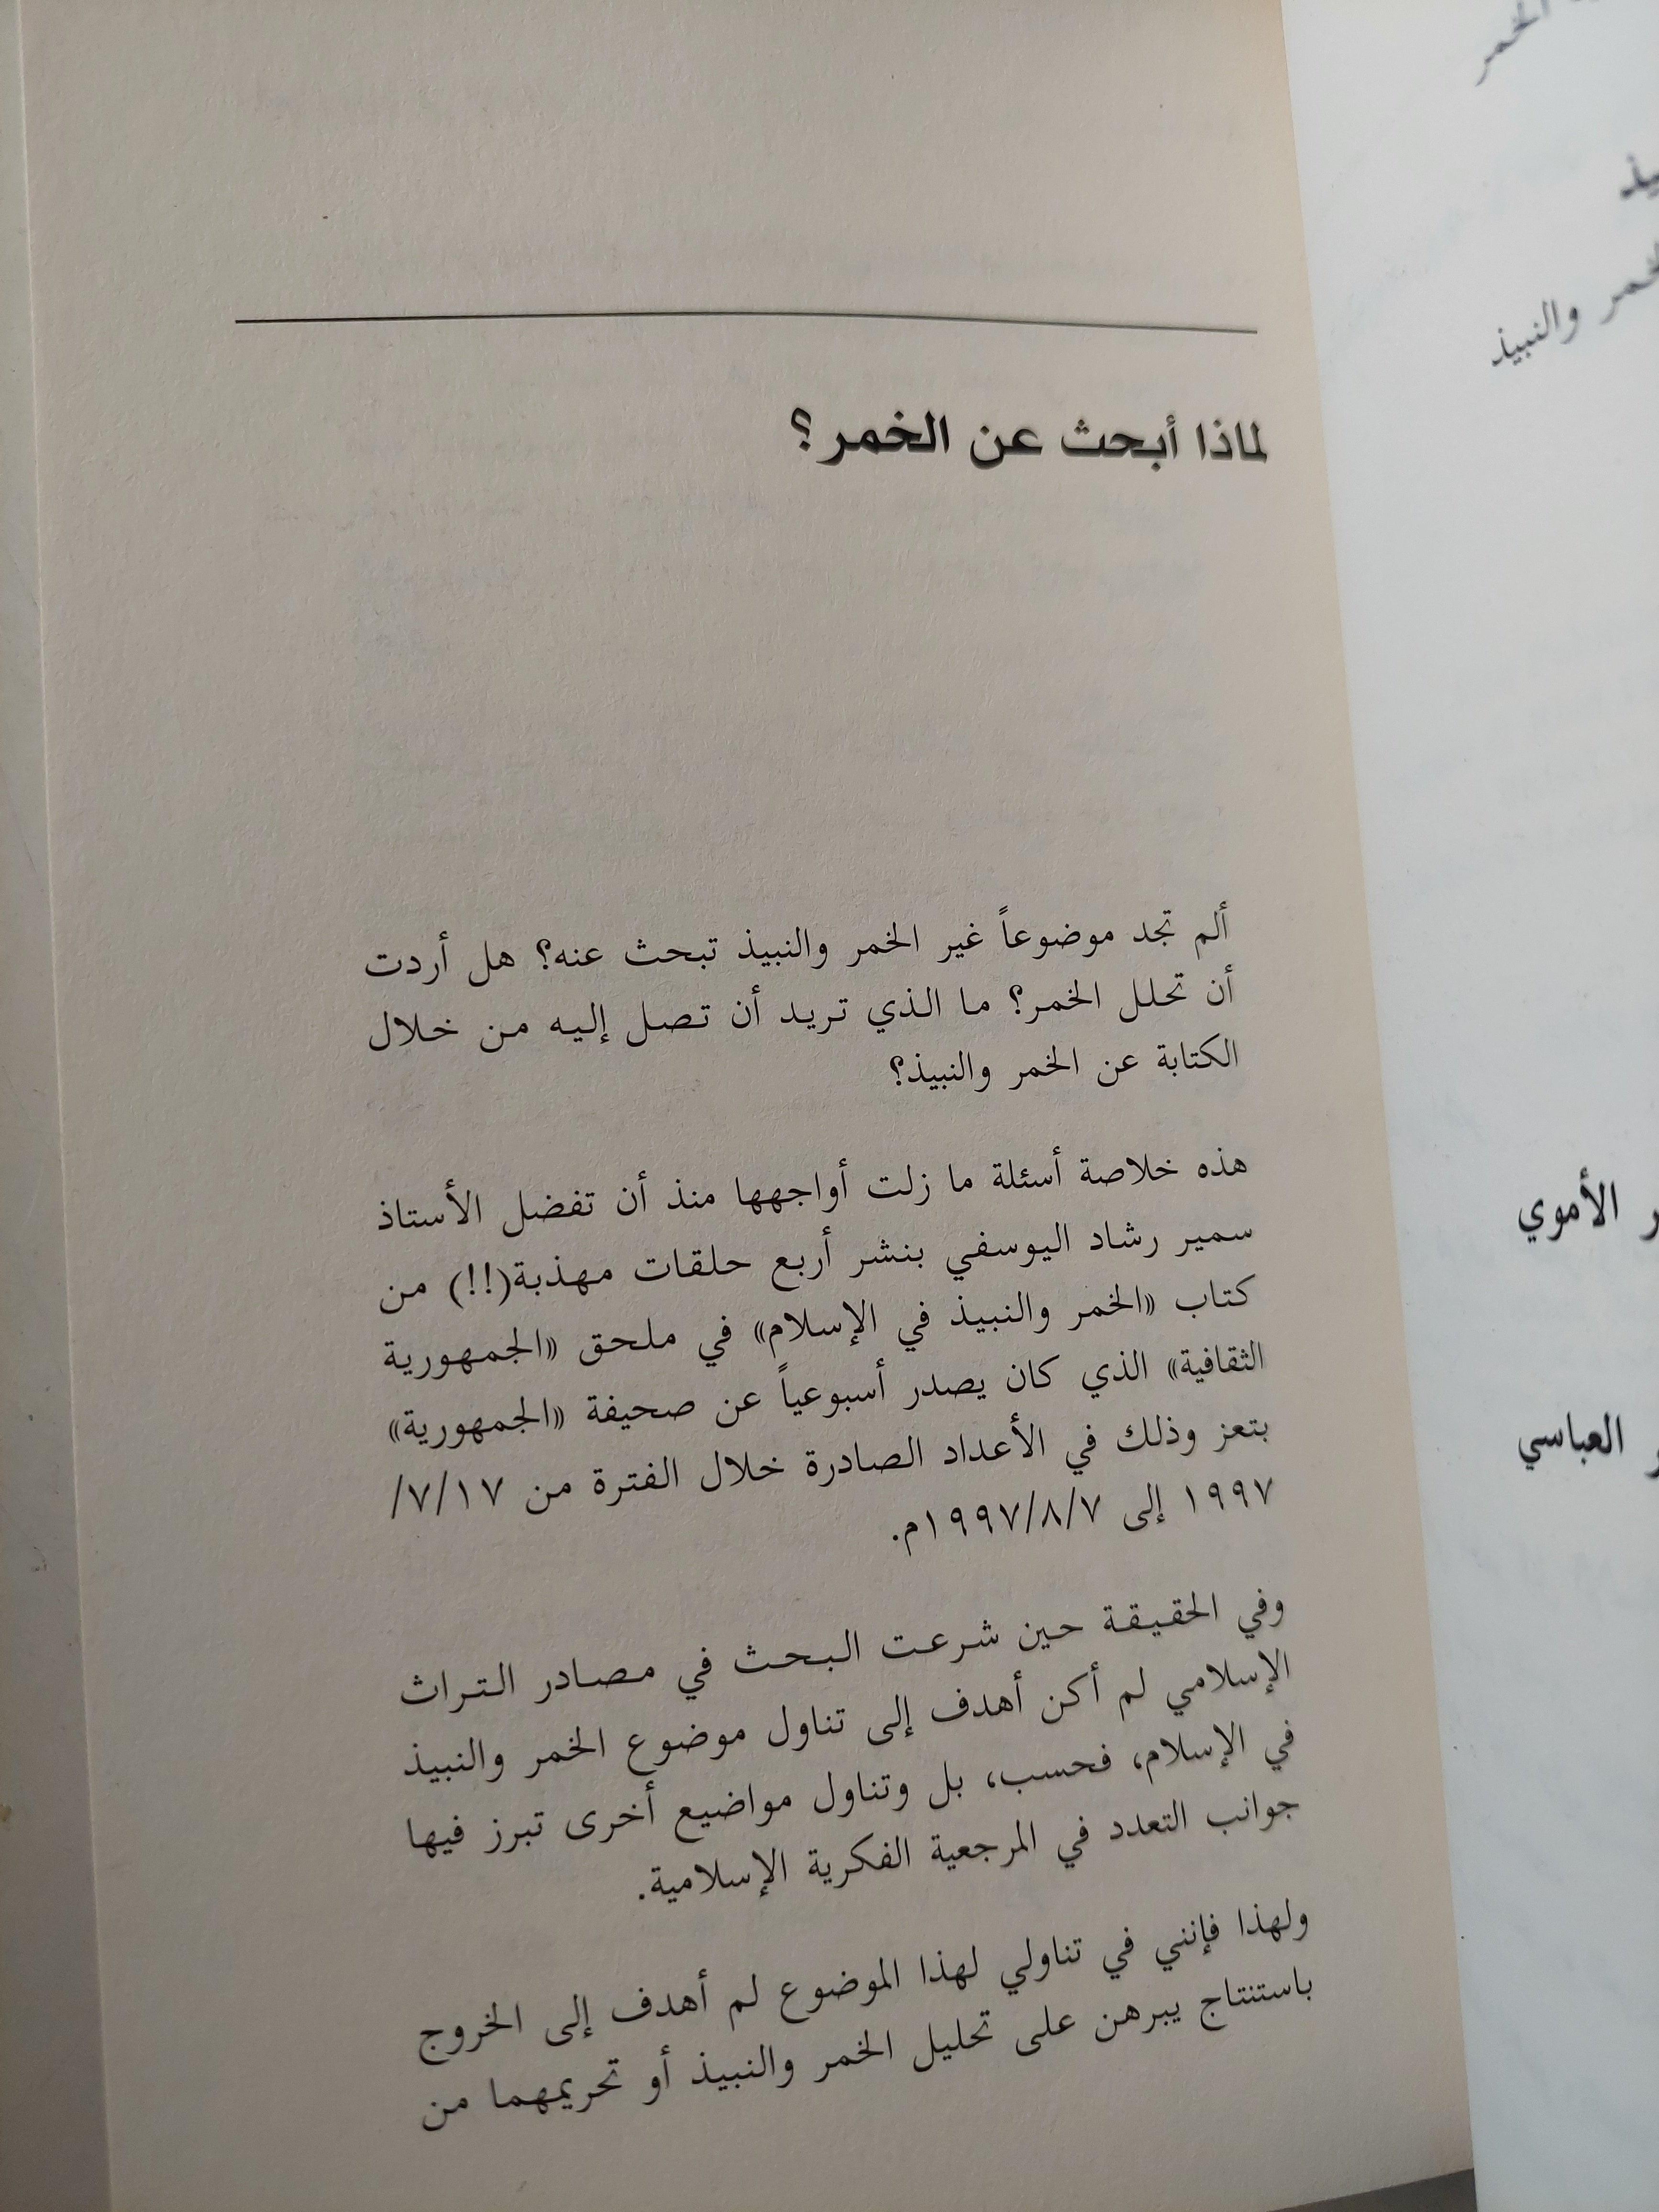 لماذا أبحث عن الخمر؟
ألم تجد موضوعاً غير الخمر والنبيذ تبحث عنه؟ هل أردت
أن تحلل الخمر؟ ما الذي تريد أن تصل إليه من خلال
الكتابة عن الخمر والنبيذ؟
هذه خلاصة أسئلة ما زلت أواجهها منذ أن تفضل الأستاذ
سمير رشاد اليوسفي بنشر أربع حلقات مهذبة(!!) من
كتاب «الخمر والنبيذ في الإسلام» في ملحق «الجمهورية
الثقافية» الذي كان يصدر أسبوعياً عن صحيفة «الجمهورية»
بتعز وذلك في الأعداد الصادرة خلال الفترة من ١٧/٧/
١٩٩٧ إلى ١٩٩٧/٨/٧م.
وفي الحقيقة حين شرعت البحث في مصادر التراث
الإسلامي لم أكن أهدف إلى تناول موضوع الخمر والنبيذ
في الإسلام، فحسب، بل وتناول مواضيع أخرى تبرز فيها
جوانب التعدد في المرجعية الفكرية الإسلامية.
ولهذا فإنني في تناولي لهذا الموضوع لم أهدف إلى الخروج
باستنتاج يبرهن على تحليل الخمر والنبيذ أو تحريمهما من
الخمر
والنبيذ
الأموي
العباسي